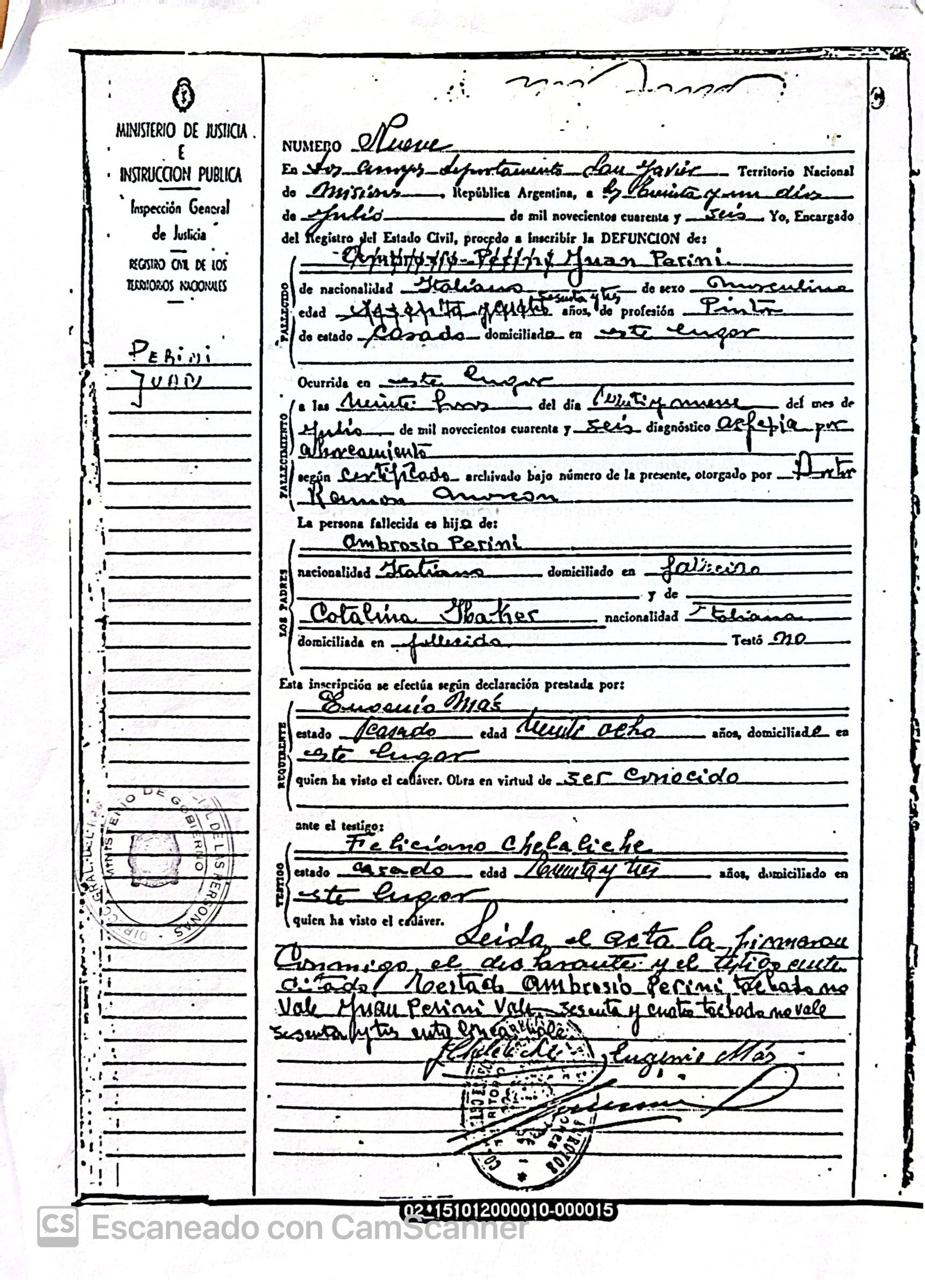 MINISTERIO DE JUSTICIA
E
INSTRUCCION PUBLICA
Inspección General
de Justicia
REGISTRO CIVIL DE LOS
TERRITORIOS NACIONALES
PERINI
JUAN
NUMERO Nueve
En Dos arroyos departamento San Javier Territorio Nacional
de Misiones, República Argentina, a los treinta y un dias
de Julio de mil novecientos cuarenta y seis Yo, Encargado
del Registro del Estado Civil, procedo a inscribir la DEFUNCION de:
Ambrosio Perini Juan Perini.
FALLECIDO
de nacionalidad Italiano de sexo masculino
sesenta y tres
edad sesenta y cuatro años, de profesión Pintor
de estado casado domiciliado en este lugar
FALLECIMIENTO
Ocurrida en este lugar
a las veinte horas del día veintinueve del mes de
Julio de mil novecientos cuarenta y seis diagnóstico asfepia por
ahorcamiento
según certificado archivado bajo número de la presente, otorgado por
Ramon
La persona fallecida es hijo de:
LOS PADRES
Ambrosio Perini
nacionalidad Italiano domiciliado en fallecido
y de
Catalina Ibaker nacionalidad Italiana
domiciliada en fallecida Testó no
Esta inscripción se efectúa según declaración prestada por:
REQUIRENTE
Eugenio Más
estado casado edad veinte ocho años, domiciliado en
este lugar
quien ha visto el cadáver. Obra en virtud de ser conocido
ante el testigo:
TESTIGO
Feliciano Chelaliche
estado casado edad treinta y tres años, domiciliado en
este lugar
quien ha visto el cadáver.
Leida el acta la firmaron
conmigo el declarante y el testigo ante
citado Testado Ambrosio Perini tachado no
Vale Juan Perini Vale sesenta y cuatro tachado no vale
sesenta y tres entre lineas vale
Eugenio Más
MINISTERIO DE GOBIERNO
DE LAS PERSONAS
02151012000010-000015
CS Escaneado con CamScanner